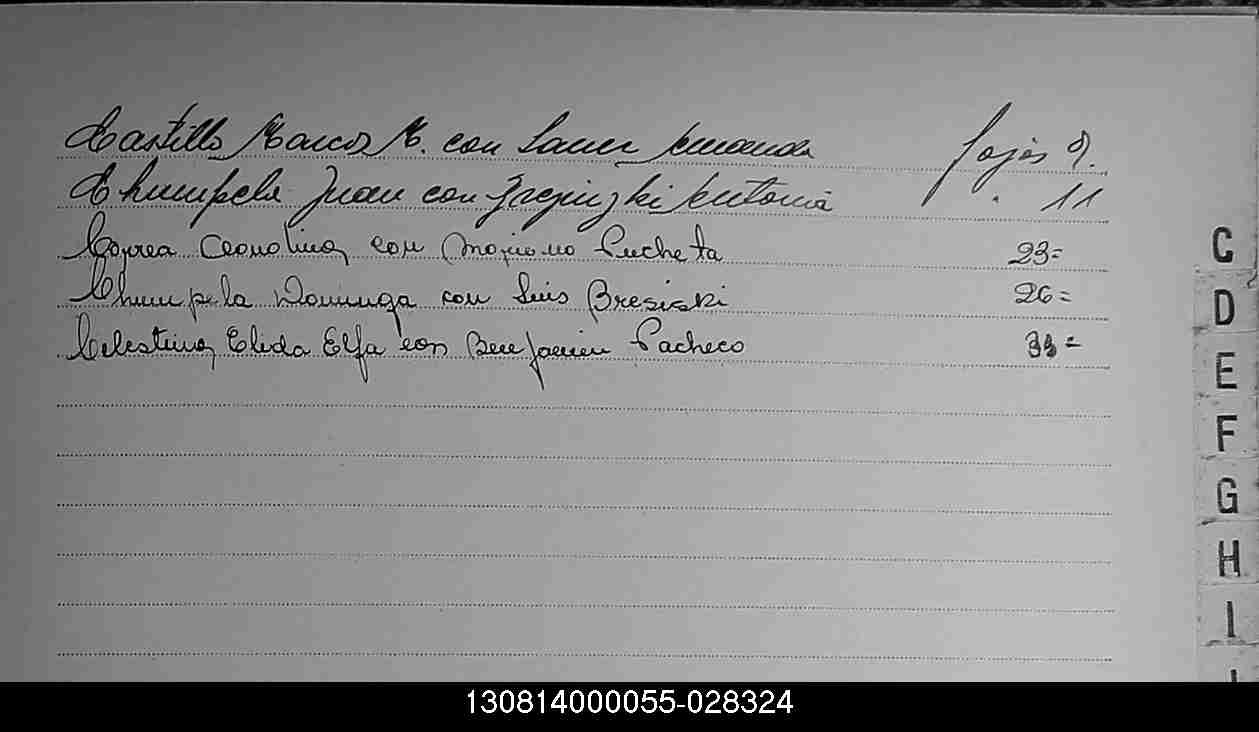 Castillo Marcos M. con fojas 9.
Chumpela Juan con Antonia " 11
Correa Ceonolina con Mojiono Pucheta 23=
Chumpela Dominga con Luis Bresiski 26=
Celestina Elida Elfa con Benjamin Pacheco 33=
C
D
E
F
G
H
I
130814000055-028324